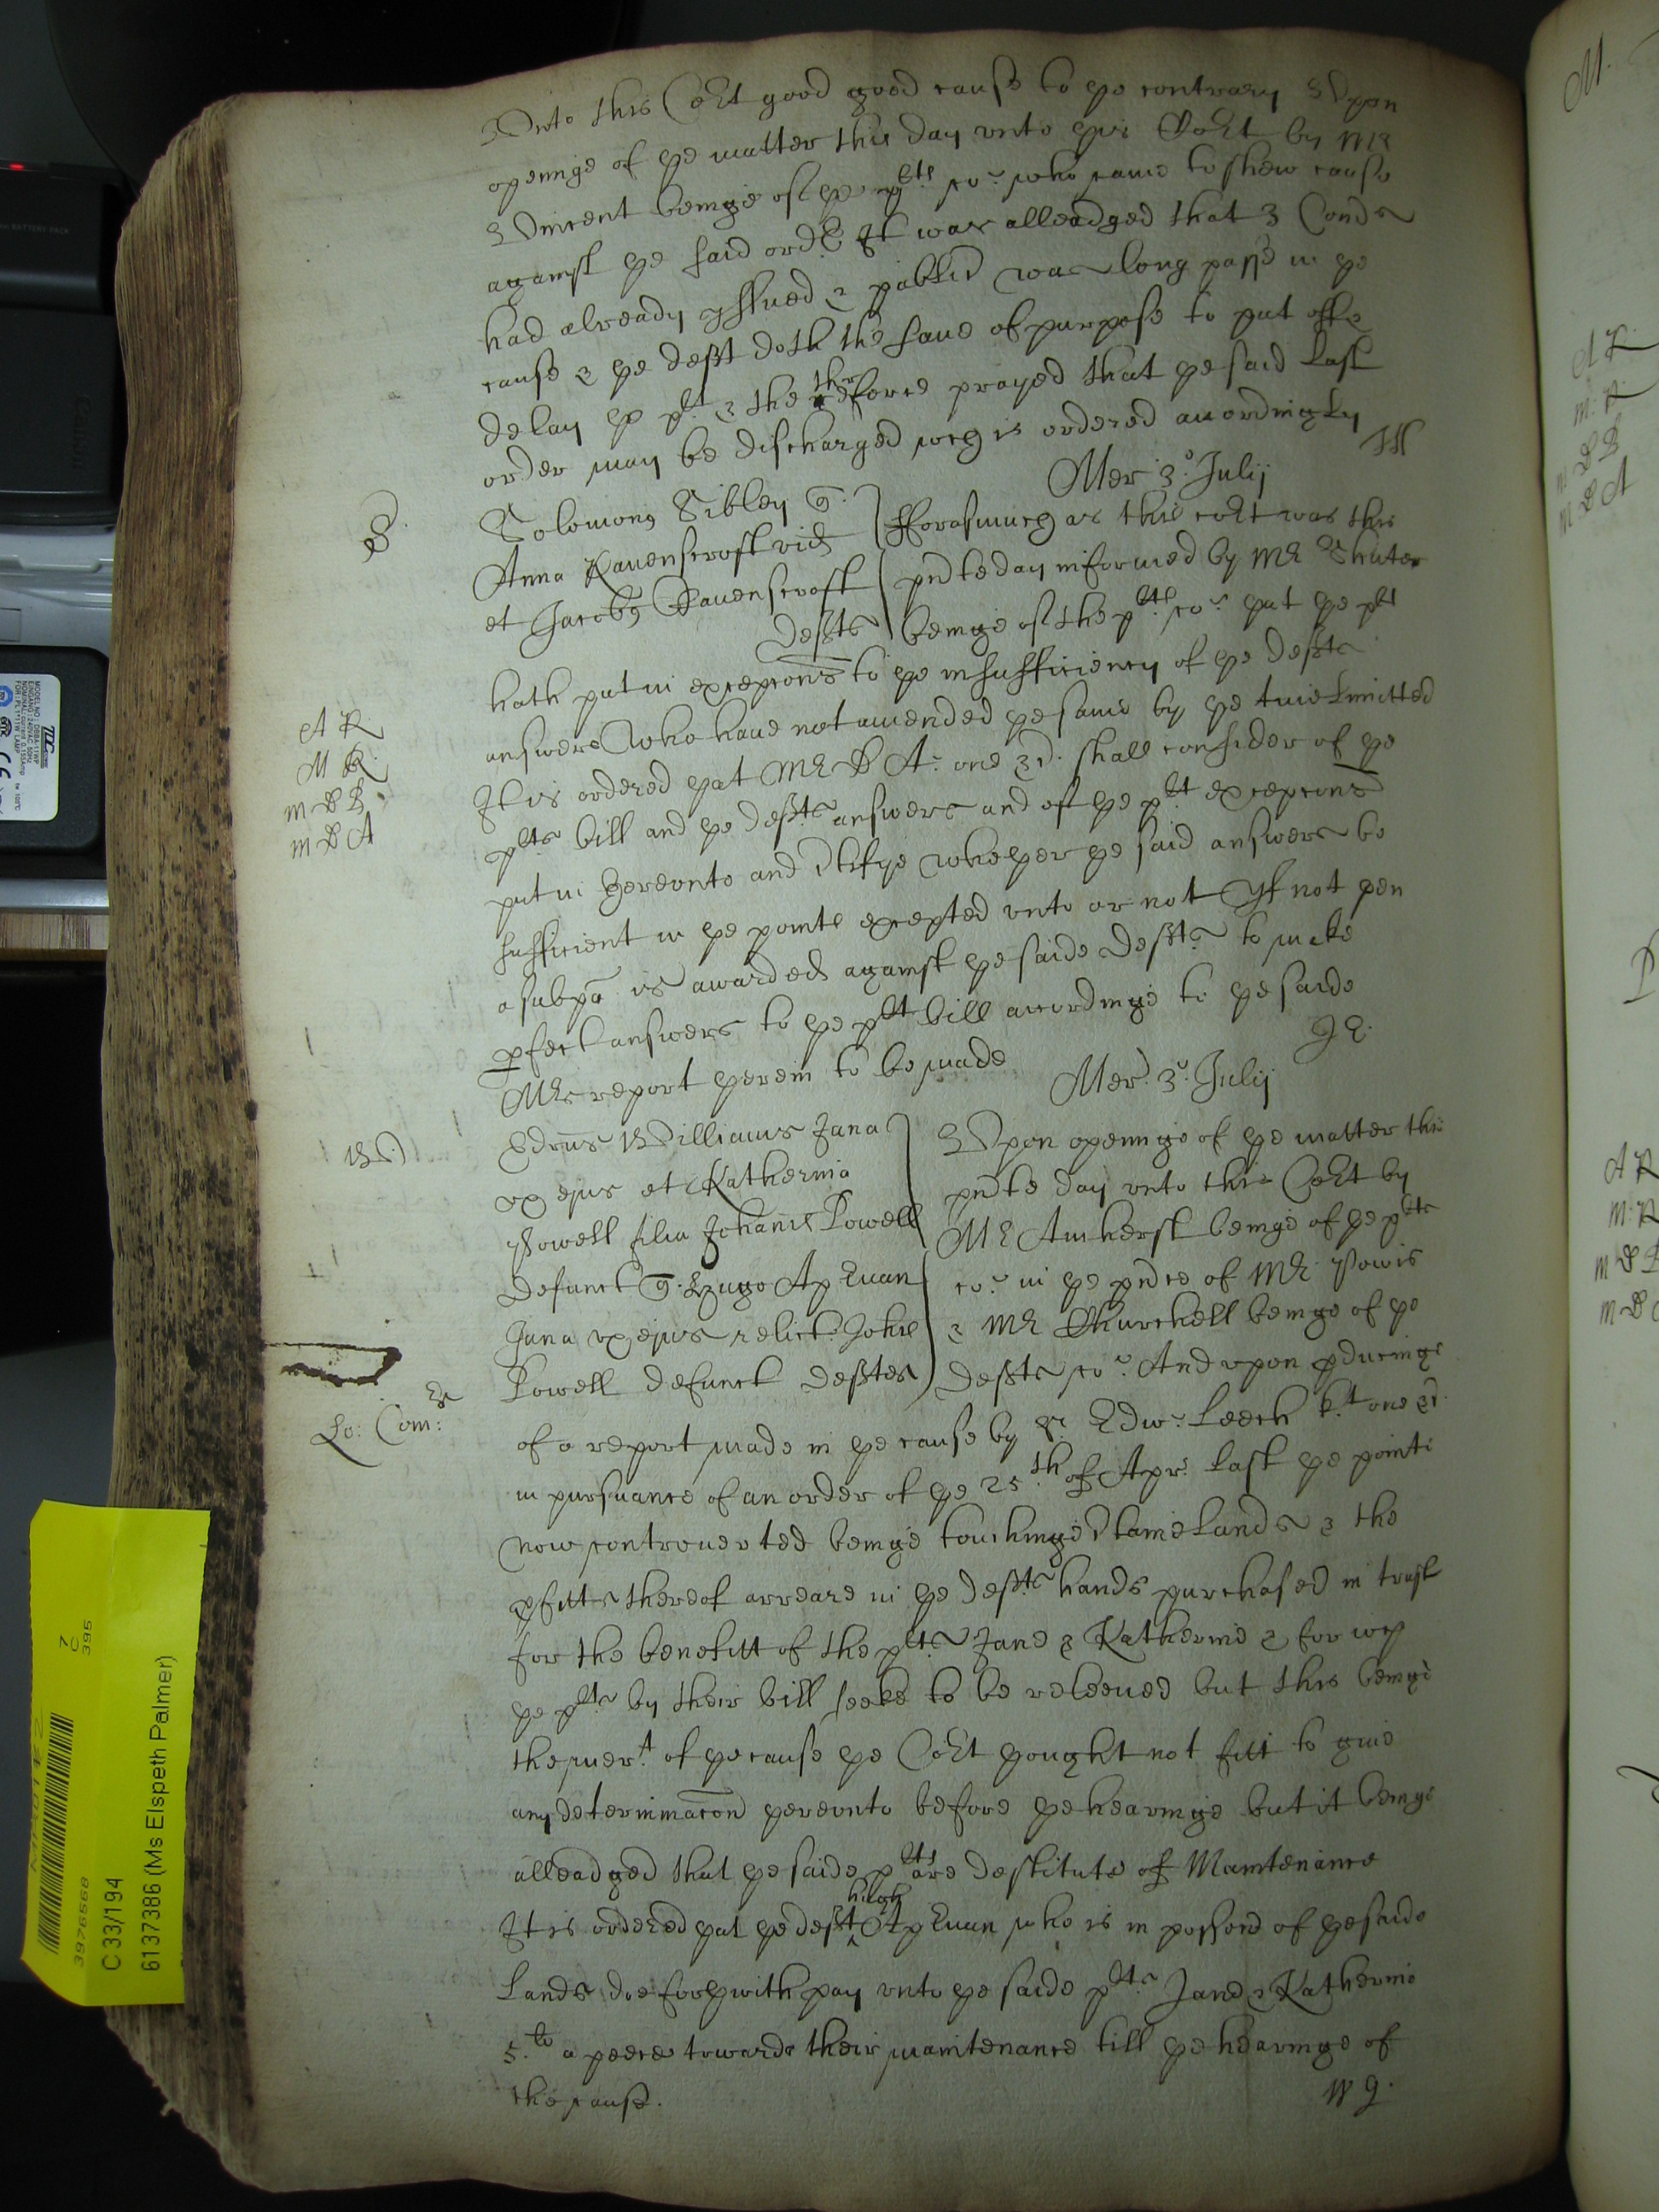 Vnto this Cort good good cause to ye contrary Vpon
openinge of ye matter this day vnto this Cort by Mr
Vincent beinge of ye plts co: who came to shew cause
against ye said order It was alleadged that Comds
had already yssued & publicō was long passed in ye
cause & ye deft doth the same of purpose to put off &
delay ye plt & the therefore prayed that ye said last
order may be discharged wch is ordered accordingly
Mer 3o Julij
S.
Solomong Sibley q.
Anna Rauenscroft vid
et Jacobg Rauenscroft
defts
Fforasmuch as this cort was this
pnte day informed by Mr Shuter
beinge of the plts co: yat ye plt
hath put in excepcons to ye insufficiency of ye defts
answers who haue not amended ye same by ye time limitted
A R
M R
m D B
m D A
It is ordered yat Mr D A: one &c. shall consider of ye
plts bill and ye defts answers and of ye plt excepcons
put in thereonto and certifye whether ye said answers be
sufficient in ye points excepted vnto or not yf not yen
a subpa is awarded against ye saide defts to make
pfect answers to ye plt bill accordinge to ye saide
Mrs report yerein to be made
Mer. 3o. Julij
W.
Edrus Williams Jana
vx ejus et Katherina
Powell filia Johanis Powell
defunct q. Hugo Ap Euan
Jana vx ejus relict. Johis
Powell defunct deftes
Vpon openinge of ye matter this
pnte day vnto this Cort by
Mr Amherst beinge of ye plts
co: in ye pnce of Mr Powis
& Mr Churchell beinge of ye
defts co: And vpon pducinge
Lo: Com:
of a report made in ye cause by Sr. Edw: Leech kt one &c.
in pursuance of an order of ye 25th of Apr: last ye points
now controuerted beinge touchinge certaine Lands & the
pfitts thereof arreare in ye defts hands purchased in trust
for the benefitt of the plts Jane & Katherine & for wch
ye plts by their bill seeke to be releeued but this beinge
the mert of ye cause ye Cort thought not fitt to giue
any determinacon yereonto before ye hearinge but it beinge
alleadged that ye saide plts are destitute of Maintenance
It is ordered yat ye deft hugh Ap Euan who is in possion of ye saide
Lands doe forthwith pay vnto ye saide plts Jane & Katherine
5.li a peece towards their maintenance till ye hearinge of
the cause.
W J.
C 33/194
6137386 (Ms Elspeth Palmer)
3976568